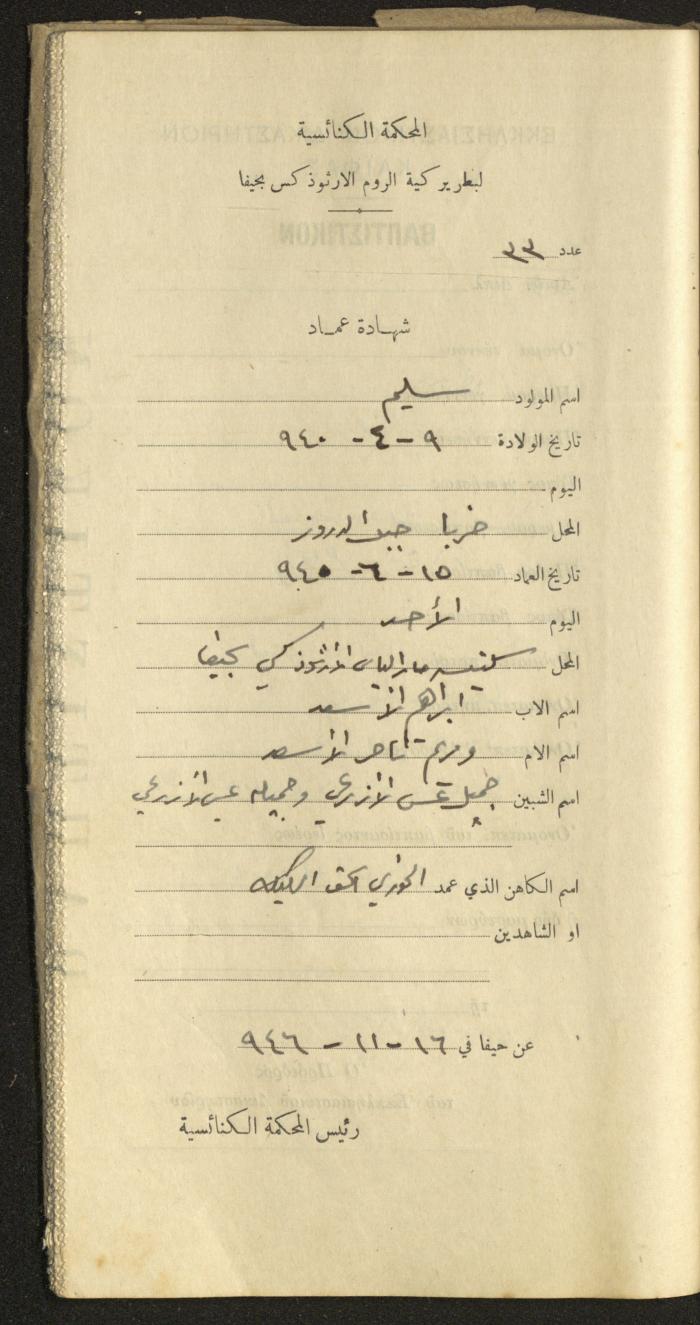 المحكمة الكنائسية
لبطريركية الروم الارثوذكس بحيفا
عدد ٣٣
شهادة عماد
اسم المولود سليم
تاريخ الولادة ٩-٤-٩٤٠
اليوم
المحل خربا جبل الدروز
تاريخ العماد ١٥-٦-٩٤٥
اليوم الأحد
المحل كنيسة مار الياس الأرثوذكسي بحيفا
اسم الاب ابراهيم الأسعد
اسم الام ومريم ناصر الأسعد
اسم الشبين جميل عيسى الأزرعي وجميله عيسى الأزرعي
اسم الكاهن الذي عمد الخوري
او الشاهدين
عن حيفا في ١٦-١١-٩٤٦
رئيس المحكمة الكنائسية